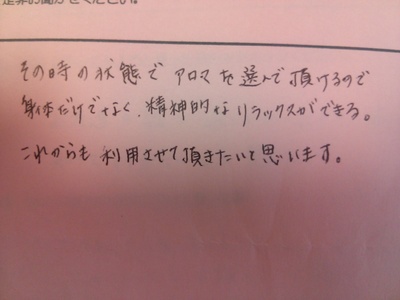 是非お聞かせください。
その時の状態でアロマを選んで頂けるので
身体だけでなく、精神的なリラックスができる。
これからも利用させて頂きたいと思います。